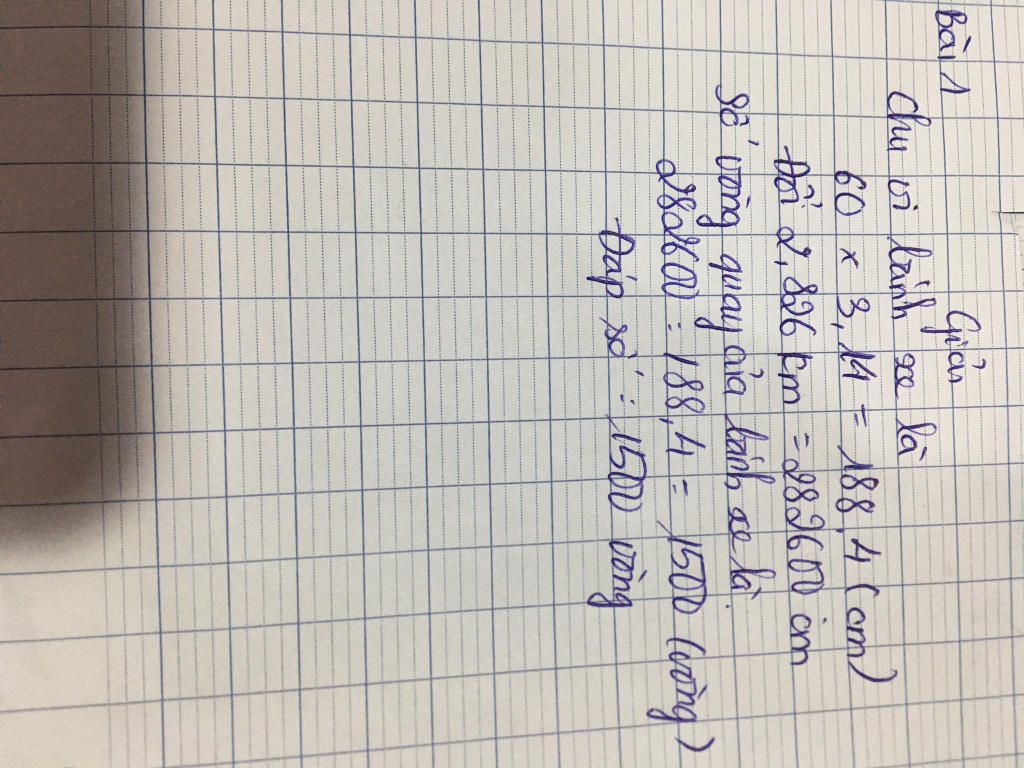 Bài 1
Giải
Chu vi bánh xe là
60 x 3,14 = 188,4 (cm)
Đổi 2,826 km = 282600 cm
Số vòng quay của bánh xe là
282600 : 188,4 = 1500 (vòng)
Đáp số : 1500 vòng